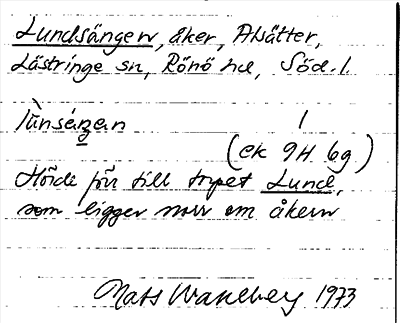 Lundsängen, åker, Alsätter,
Lästringe sn, Rönö hd, Söd. l.
lùnsæ̀ŋen 1
(ek 9H 6g)
Hörde förr till torpet Lund,
som ligger norr om åkern
Mats Wahlberg 1973